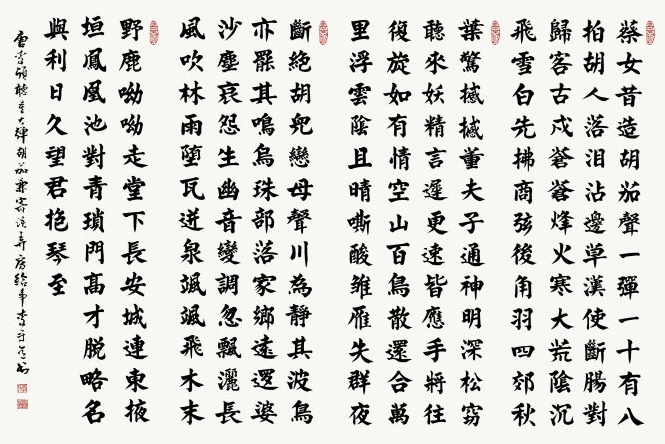 蔡女昔造胡笳聲一彈一十有八
拍胡人落泪沾邊草漢使斷腸對
歸客古戍蒼蒼烽火寒大荒陰沉
飛雪白先拂商弦後角羽四郊秋
葉驚撼撼董夫子通神明深松竊
聽來妖精言遲更速皆應手將往
復旋如有情空山百鳥散還合萬
里浮雲陰且晴嘶酸雛雁失群夜
斷絕胡兒戀母聲川為靜其波鳥
亦罷其鳴烏珠部落家鄉遠邏婆
沙塵哀怨生幽音變調忽飄灑長
風吹林雨墮瓦迸泉颯颯飛木末
野鹿呦呦走堂下長安城連東掖
垣鳳凰池對青瑣門高才脫略名
與利日久望君抱琴至
唐李頎聽董大彈胡笳兼寄語弄房給事